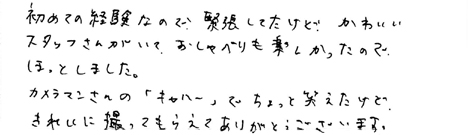 初めての経験なので、緊張してたけど、かわいい
スタッフさんがいて、おしゃべりも楽しかったので、
ほっとしました。
カメラマンさんの「キャハー」でちょっと笑えたけど、
きれいに撮ってもらえてありがとうございます。